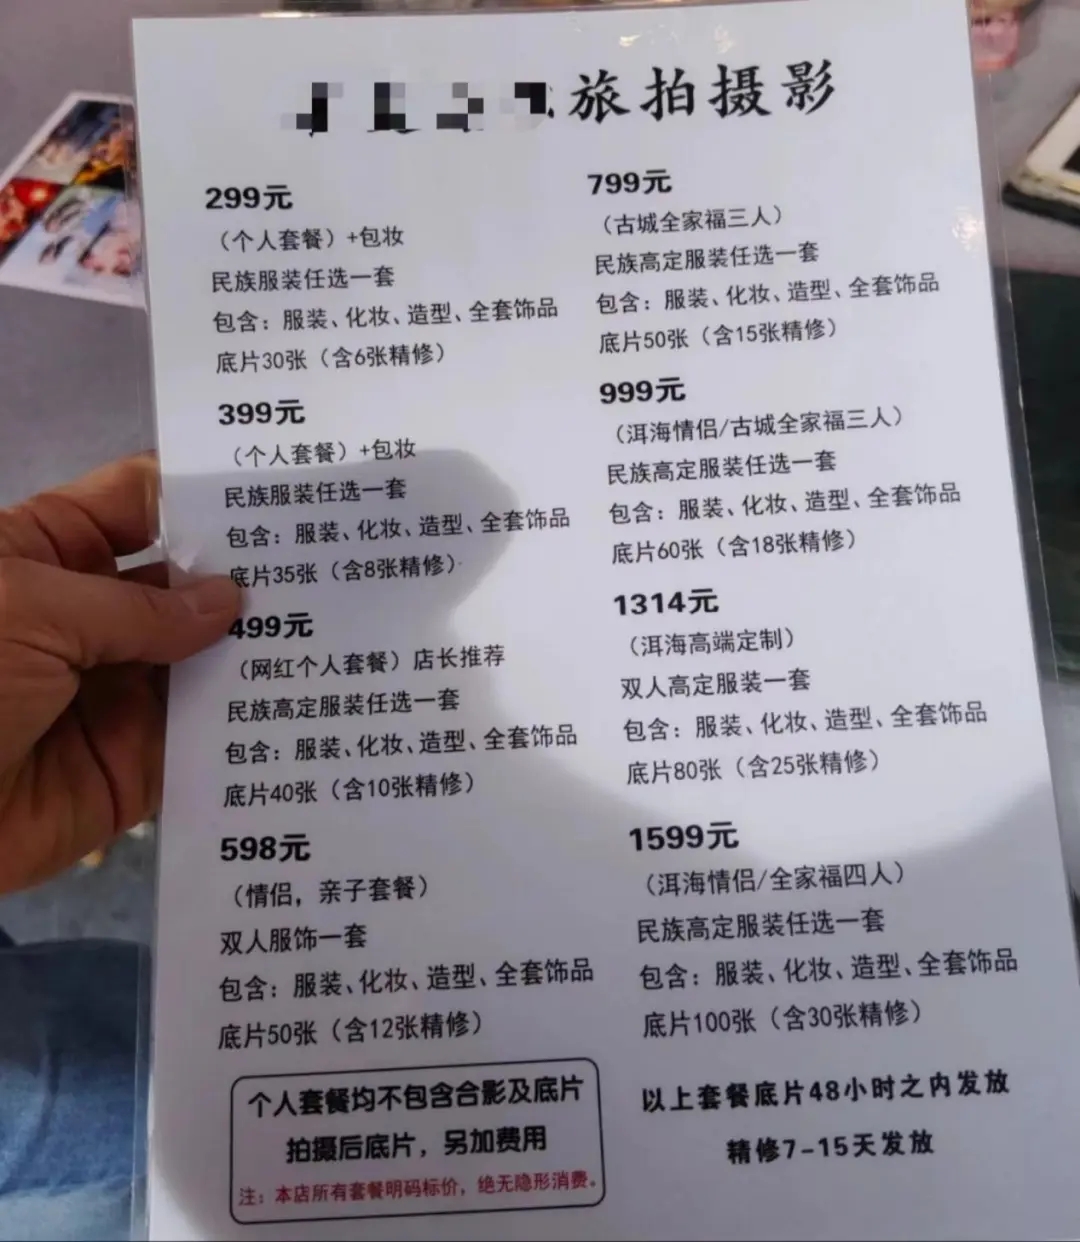 旅拍摄影
299元
（个人套餐）+包妆
民族服装任选一套
包含：服装、化妆、造型、全套饰品
底片30张（含6张精修）
399元
（个人套餐）+包妆
民族服装任选一套
包含：服装、化妆、造型、全套饰品
底片35张（含8张精修）
499元
（网红个人套餐）店长推荐
民族高定服装任选一套
包含：服装、化妆、造型、全套饰品
底片40张（含10张精修）
598元
（情侣，亲子套餐）
双人服饰一套
包含：服装、化妆、造型、全套饰品
底片50张（含12张精修）
799元
（古城全家福三人）
民族高定服装任选一套
包含：服装、化妆、造型、全套饰品
底片50张（含15张精修）
999元
（洱海情侣/古城全家福三人）
民族高定服装任选一套
包含：服装、化妆、造型、全套饰品
底片60张（含18张精修）
1314元
（洱海高端定制）
双人高定服装一套
包含：服装、化妆、造型、全套饰品
底片80张（含25张精修）
1599元
（洱海情侣/全家福四人）
民族高定服装任选一套
包含：服装、化妆、造型、全套饰品
底片100张（含30张精修）
个人套餐均不包含合影及底片
拍摄后底片，另加费用
注：本店所有套餐明码标价，绝无隐形消费。
以上套餐底片48小时之内发放
精修7-15天发放